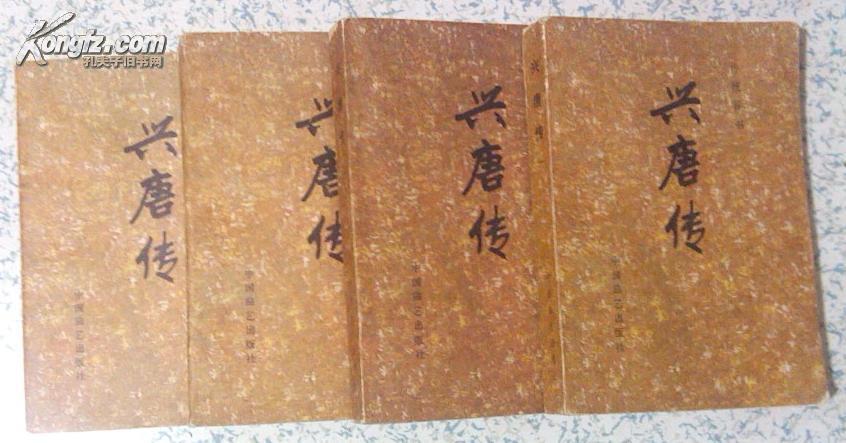 Kongfz.com
孔夫子旧书网
兴唐传
中国曲艺出版社
兴唐传
中国曲艺出版社
兴唐传
中国曲艺出版社
兴唐传
兴唐传
中国曲艺出版社